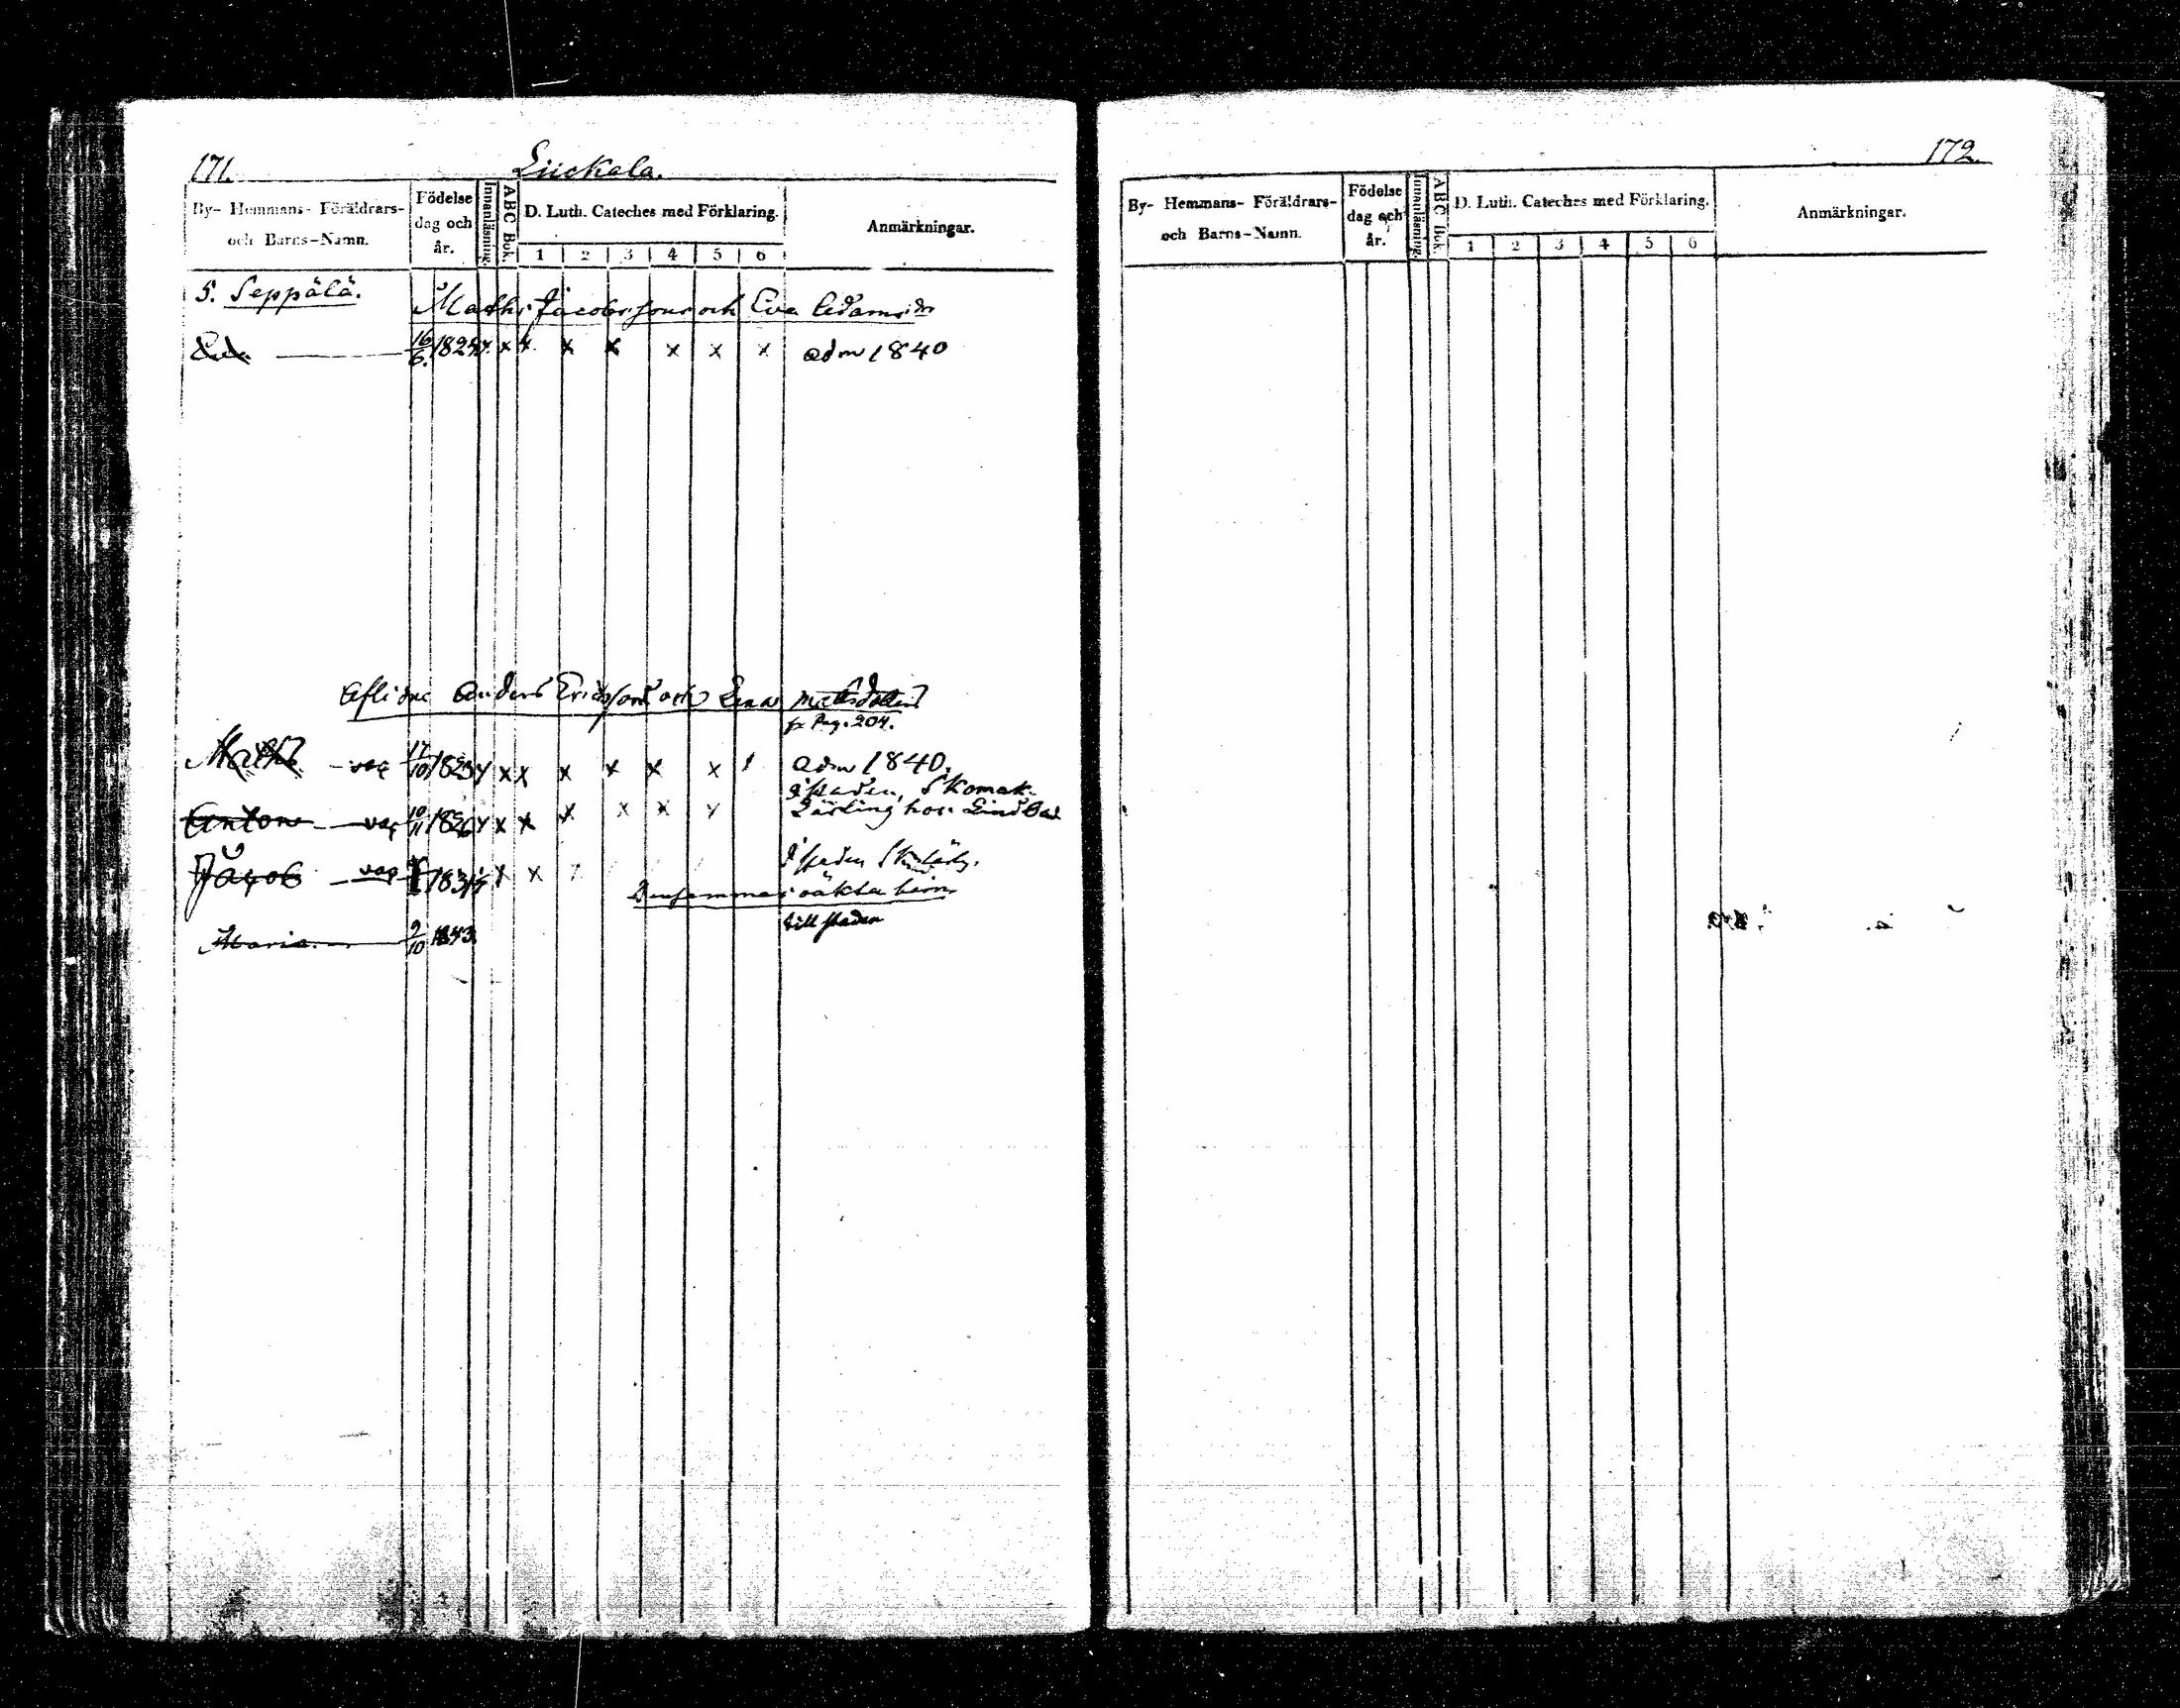 171.
Liickala.
By- Hemmans- Föräldrars- och Barns-Namn.
Födelse dag och år.
Innanläsning.
ABC Bok.
D. Luth. Cateches med Förklaring.
1 2 3 4 5 6
Anmärkningar.
5. Seppälä.
Matts Jacobssons och Eva Adamsdr
16/6 182 x x x x x x x adm 1840
Aflidne Anders Ericssons och Lena Mattsdotters
fr Pag. 204.
Matts vac 17/10 1823 x x x x x x x adm 1840.
i staden, Skomak.
Lärling hos
Anton vac 10/11 1826 x x x x x x
Jacob vac 183 x x
i staden
Densammas oäkta barn
till staden
Maria 9/10 1843.
172.
By- Hemmans- Föräldrars- och Barns-Namn.
Födelse dag och år.
Innanläsning.
ABC Bok.
D. Luth. Cateches med Förklaring.
1 2 3 4 5 6
Anmärkningar.